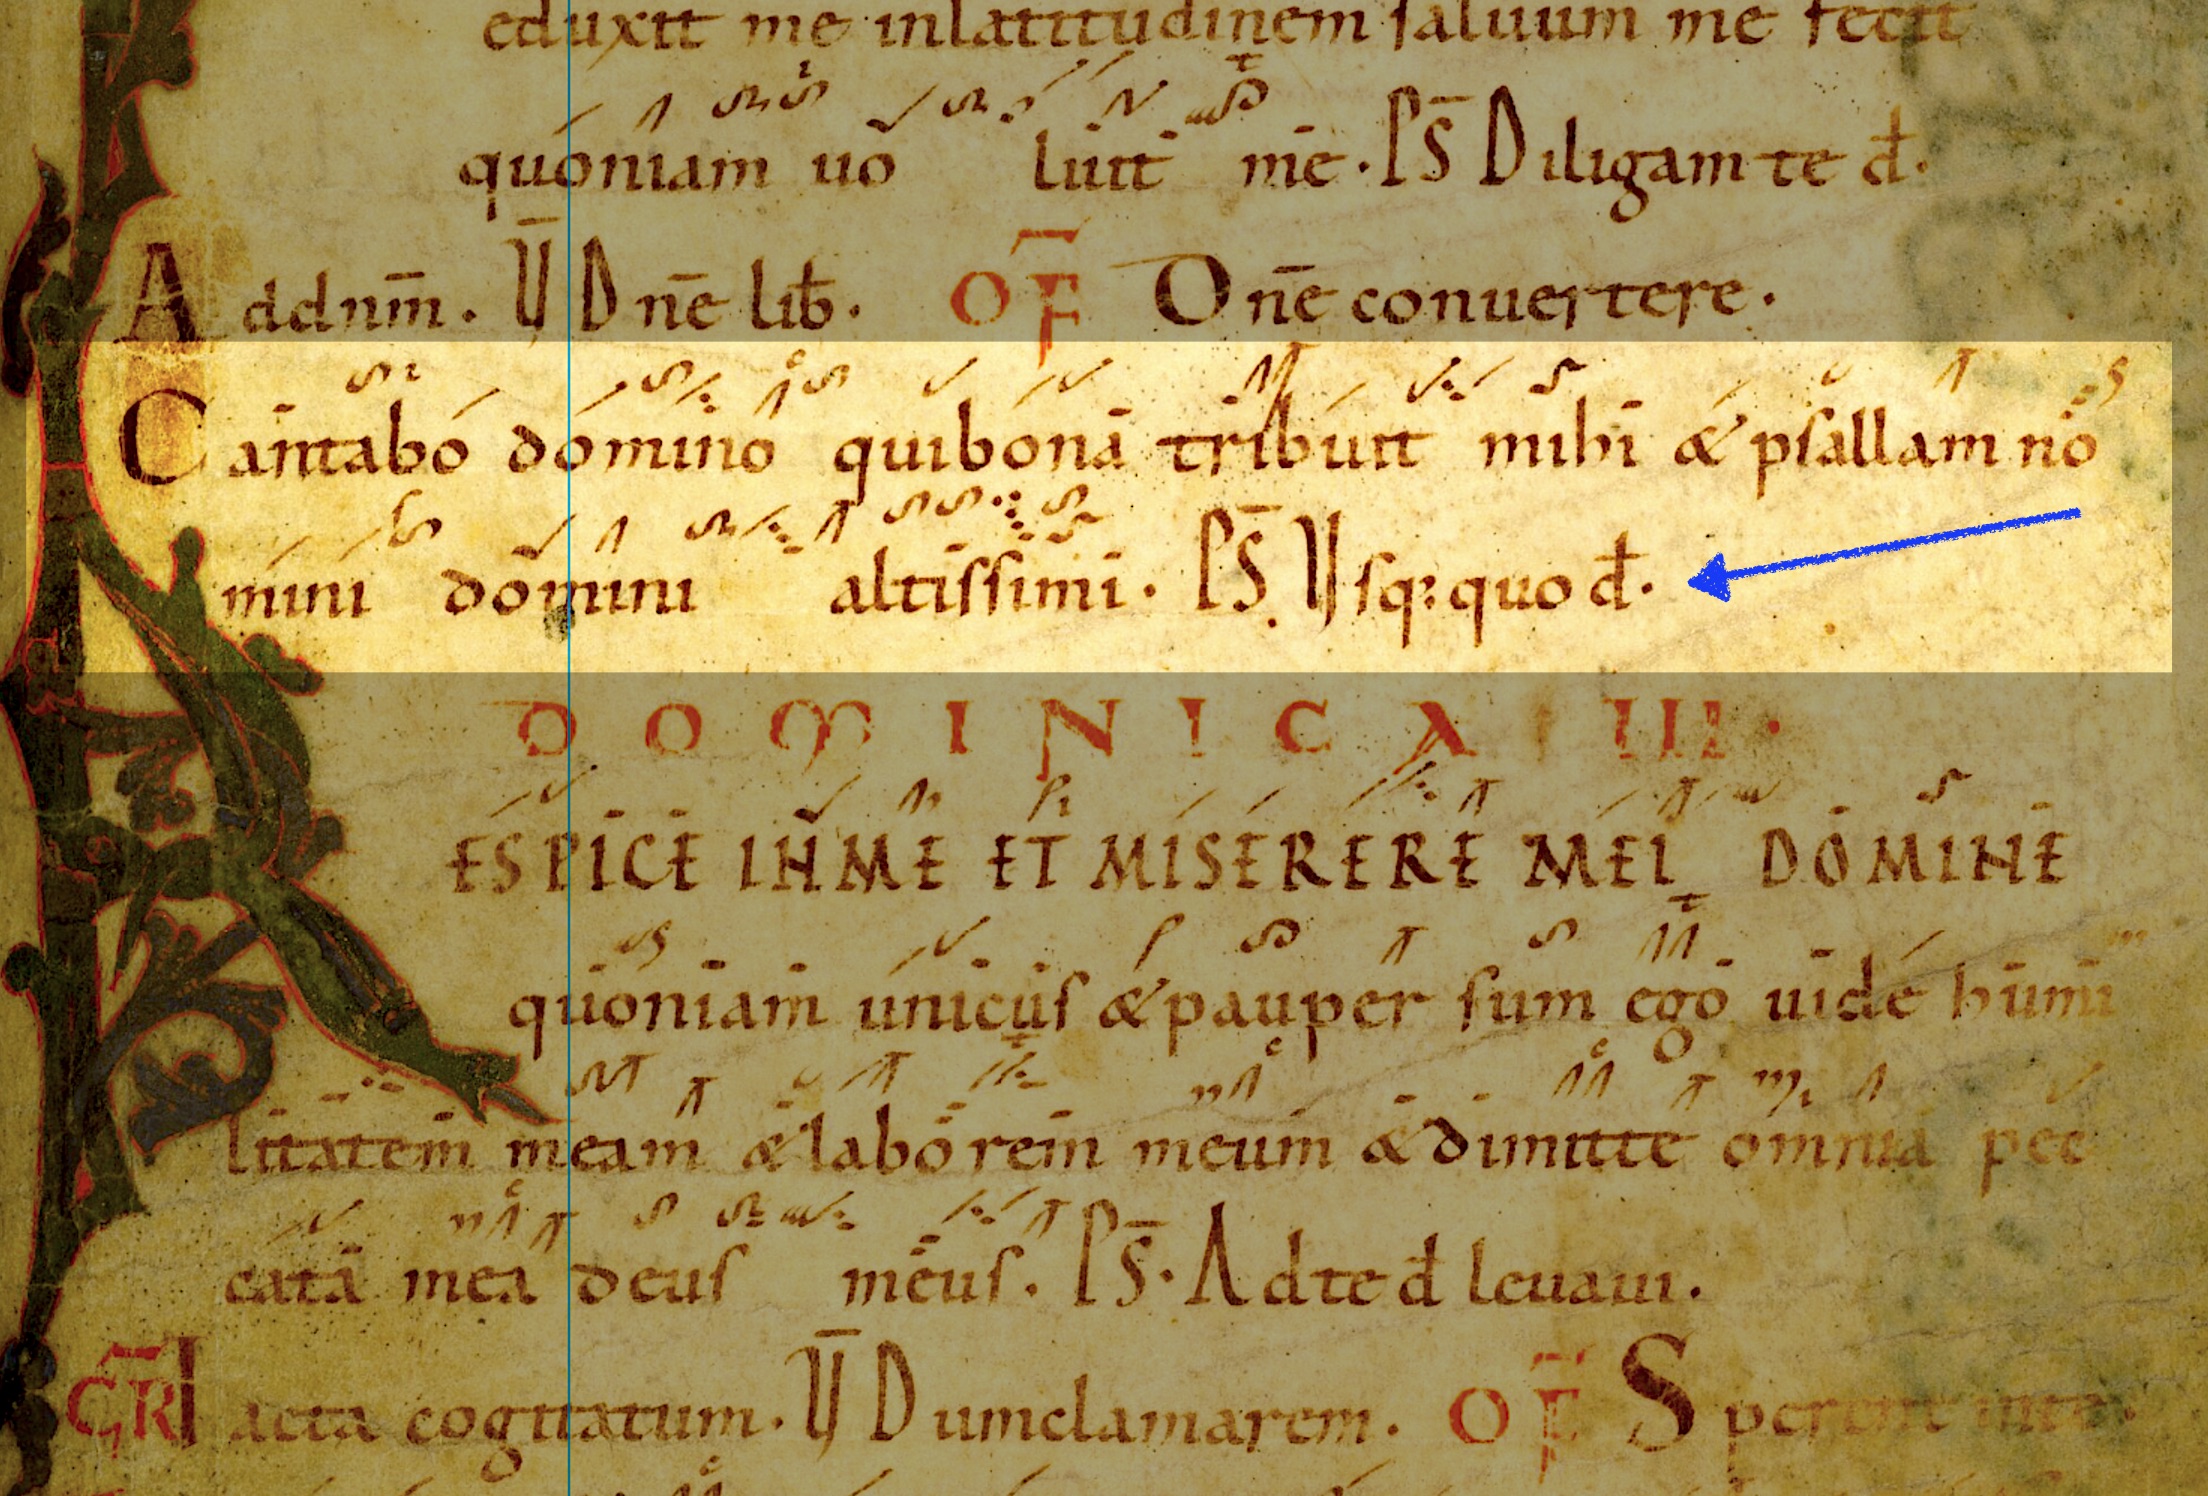 eduxit me inlatitudinem saluum me fecit
quoniam uo luit me. PS Diligam te d.
Addnm. V Dne lib. OF Dne conuertere.
Cantabo domino qui bona tribuit mihi & psallam no
mini domini altissimi. PS Vsq; quo d.
DOMINICA III.
ESPICE IN ME ET MISERERE MEI DOMINE
quoniam unicus & pauper sum ego uide humi
litatem meam & laborem meum & dimitte omnia pec
cata mea deus meus. PS. Ad te d leuaui.
GR Iacta cogitatum. V Dum clamarem. OF Sperent inte.